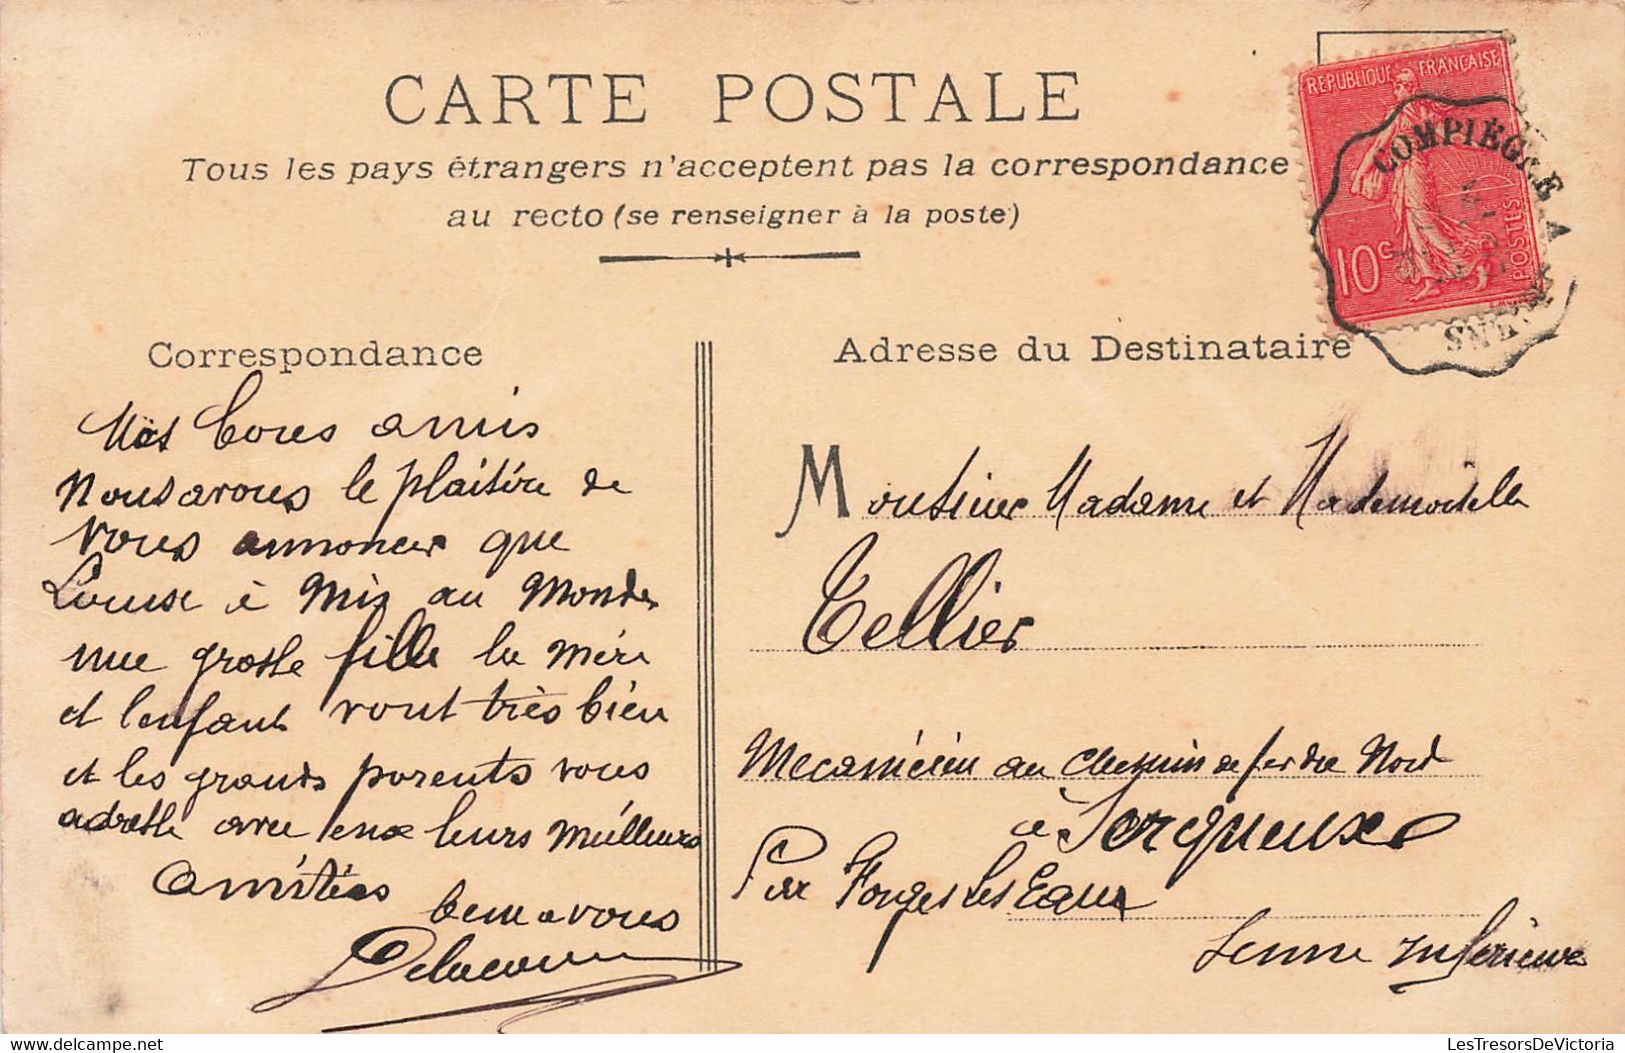 CARTE POSTALE
Tous les pays étrangers n'acceptent pas la correspondance
au recto (se renseigner à la poste)
REPUBLIQUE FRANÇAISE
10c
POSTES
COMPIÈGNE A AMIENS
Correspondance
Mes bons amis
Nous avons le plaisire de
vous annoncer que
Louise à Mis au Monde
une grosse fille la mère
et l'enfant vont très bien
et les grands parents vous
adresse avec eux leurs Meilleurs
amitiés
bien a vous
Delacour
Adresse du Destinataire
Monsieur Madame et Mademoiselle
Tellier
Mecanicien au Chemin de fer du Nord
a Serqueux
Par Forges les Eaux
Seine Inferieure
LesTresorsDeVictoria
delcampe.net